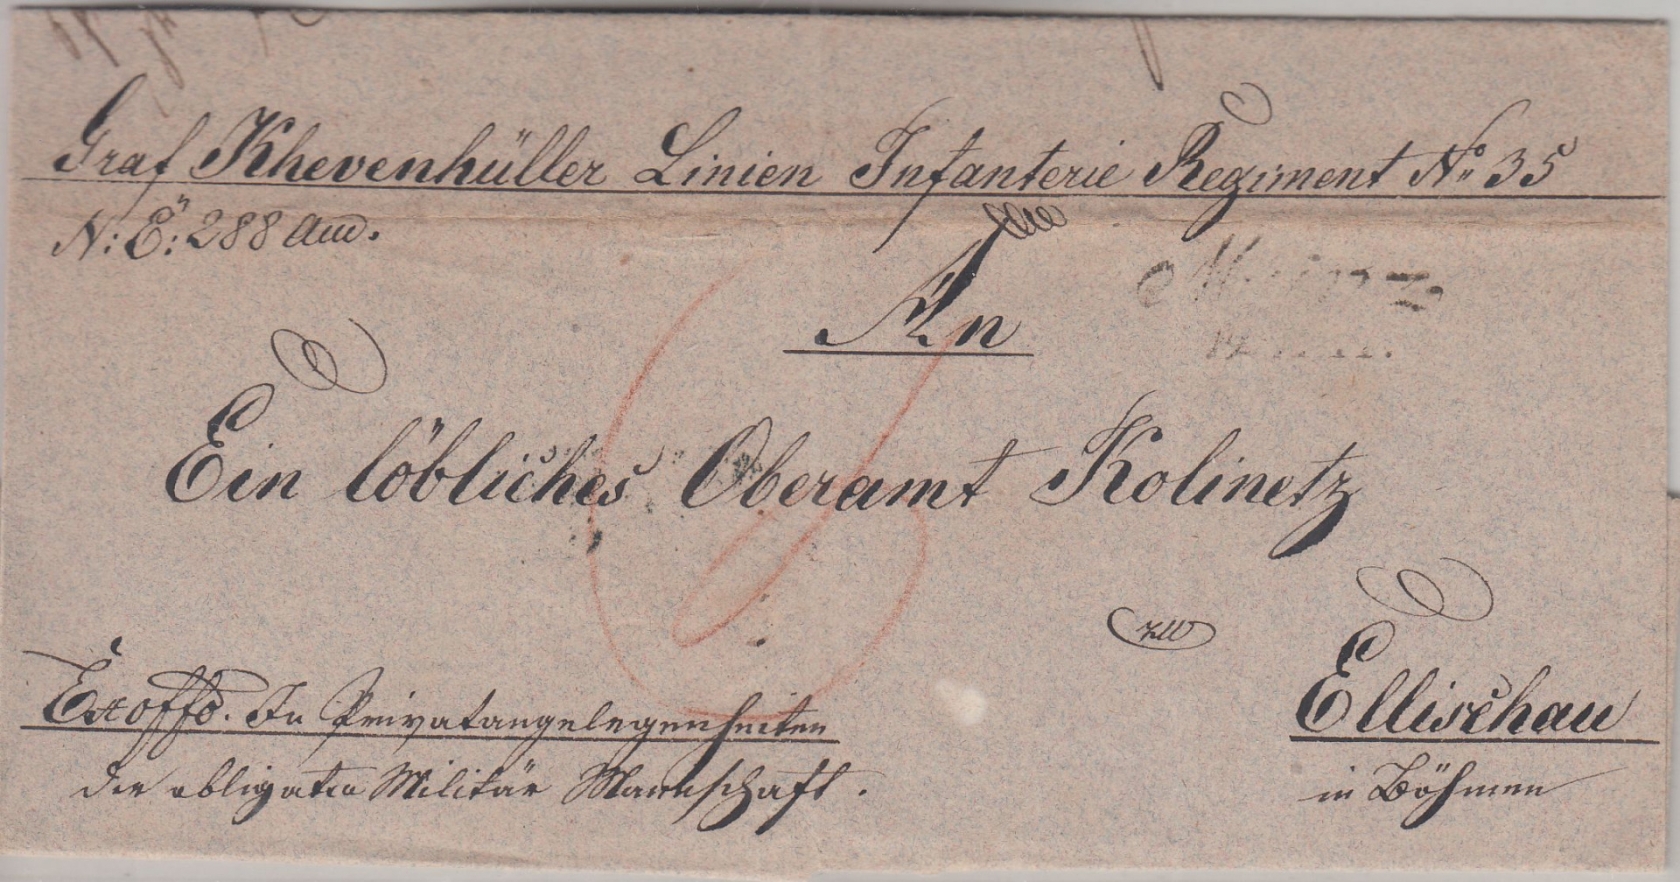 Graf Khevenhüller Linien Infanterie Regiment No 35
N: E: 288 Aud.
An
Ein löbliches Oberamt Kolinetz
zu
Ellischau
in Böhmen
Exoffo. In Privatangelegenheiten
der obligaten Militär Mannschaft.